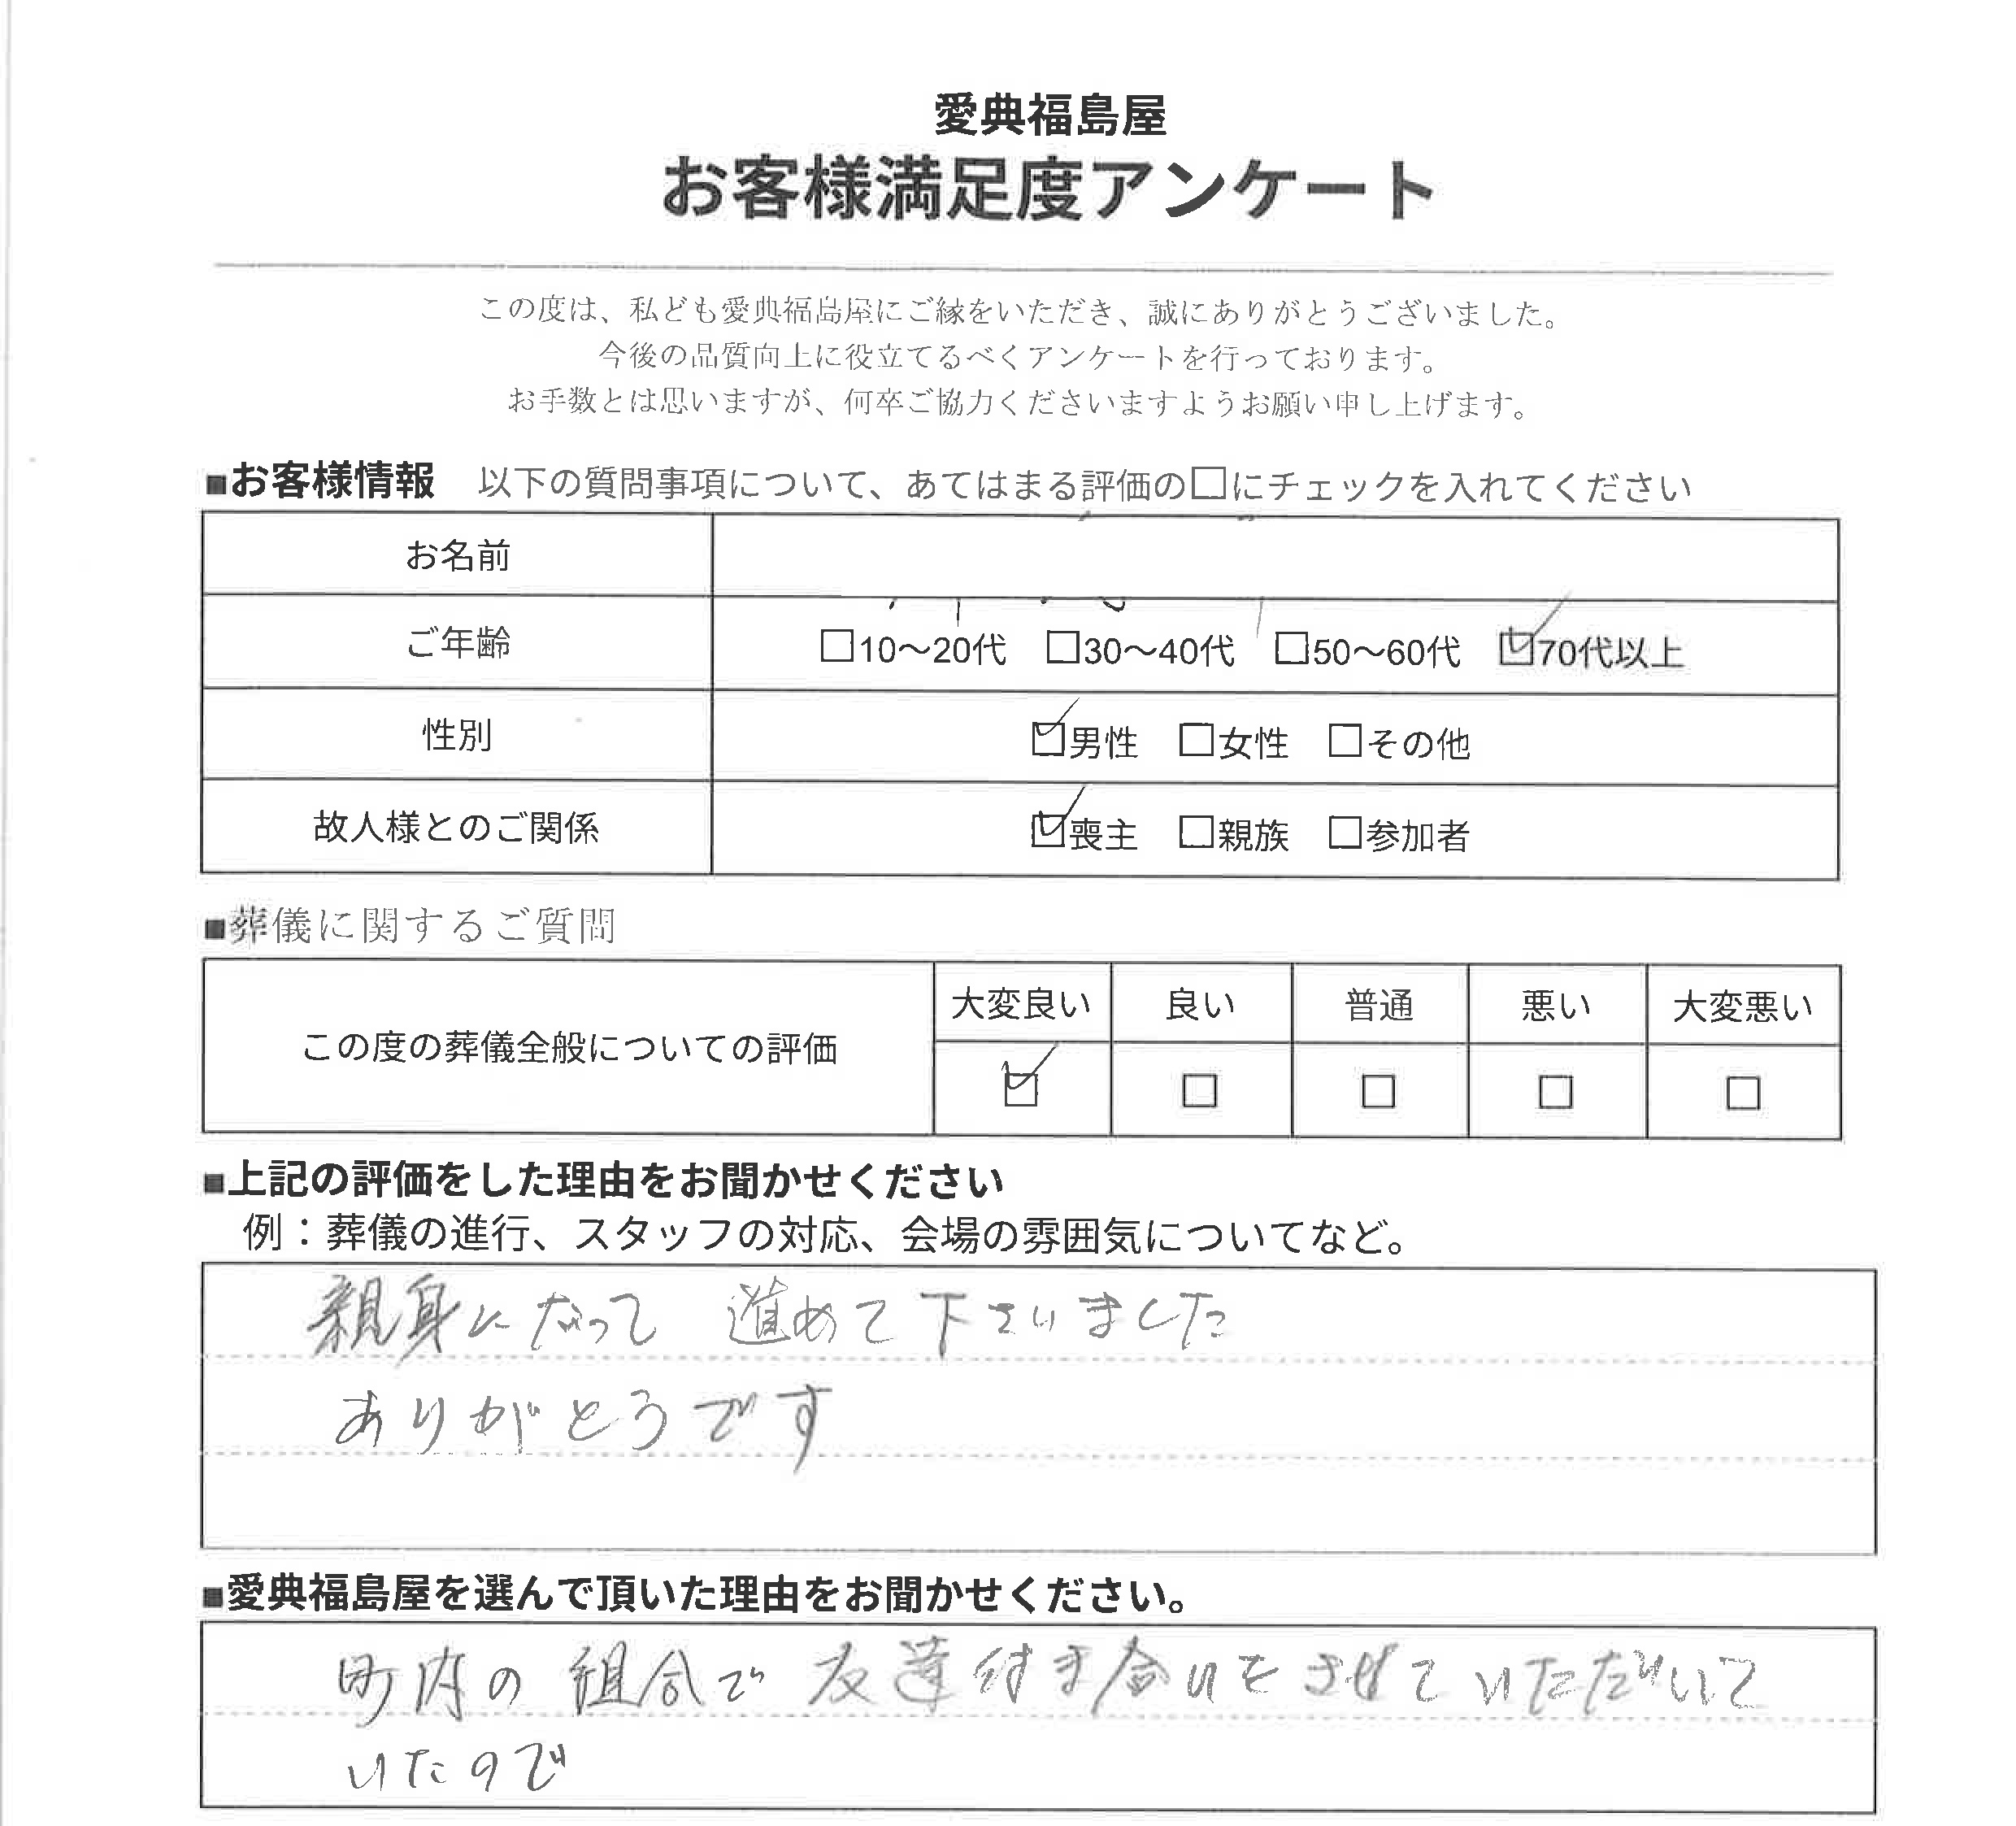 愛典福島屋
お客様満足度アンケート
この度は、私ども愛典福島屋にご縁をいただき、誠にありがとうございました。
今後の品質向上に役立てるべくアンケートを行っております。
お手数とは思いますが、何卒ご協力くださいますようお願い申し上げます。
■お客様情報 以下の質問事項について、あてはまる評価の□にチェックを入れてください
お名前
ご年齢 □10～20代 □30～40代 □50～60代 ☑70代以上
性別 ☑男性 □女性 □その他
故人様とのご関係 ☑喪主 □親族 □参加者
■葬儀に関するご質問
この度の葬儀全般についての評価
大変良い 良い 普通 悪い 大変悪い
☑ □ □ □ □
■上記の評価をした理由をお聞かせください
例：葬儀の進行、スタッフの対応、会場の雰囲気についてなど。
親身になって 進めて下さいました
ありがとうです
■愛典福島屋を選んで頂いた理由をお聞かせください。
町内の組合で友達付き合いをさせていただいて
いたので